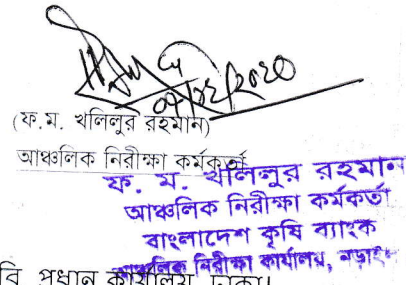 ০৭/১২/২০২০
(ফ.ম. খলিলুর রহমান)
আঞ্চলিক নিরীক্ষা কর্মকর্তা
ফ. ম. খলিলুর রহমান
আঞ্চলিক নিরীক্ষা কর্মকর্তা
বাংলাদেশ কৃষি ব্যাংক
আঞ্চলিক নিরীক্ষা কার্যালয়, নড়াইল
বি প্রধান কার্যালয় ঢাকা।